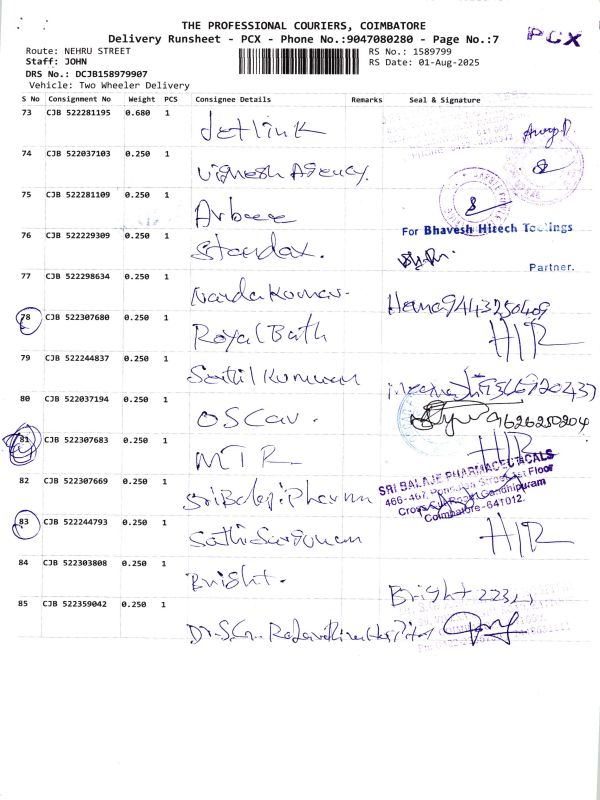 THE PROFESSIONAL COURIERS, COIMBATORE
Delivery Runsheet - PCX - Phone No.:9047080280 - Page No.:7
PCX
Route: NEHRU STREET
RS No.: 1589799
Staff: JOHN
RS Date: 01-Aug-2025
DRS No.: DCJB158979907
Vehicle: Two Wheeler Delivery
S No Consignment No Weight PCS Consignee Details Remarks Seal & Signature
73 CJB 522281195 0.680 1 Jetlink
74 CJB 522037103 0.250 1 Vignesh Agency.
75 CJB 522281109 0.250 1
For Bhavesh Hitech Toolings
76 CJB 522229309 0.250 1 Standax.
Partner.
77 CJB 522298634 0.250 1 Nanda Kumar. Hema 9443250409
78 CJB 522307680 0.250 1 Royal Bath
79 CJB 522244837 0.250 1
80 CJB 522037194 0.250 1 OSCar. 9626250204
81 CJB 522307683 0.250 1 MTR
82 CJB 522307669 0.250 1 Sri Balaji Pharma
SRI BALAJE PHARMACEUTICALS
466-467,
Cross Cut Road, Gandhipuram
Coimbatore - 641012.
83 CJB 522244793 0.250 1
84 CJB 522303808 0.250 1 Bright. Bright
85 CJB 522359042 0.250 1 Hospital